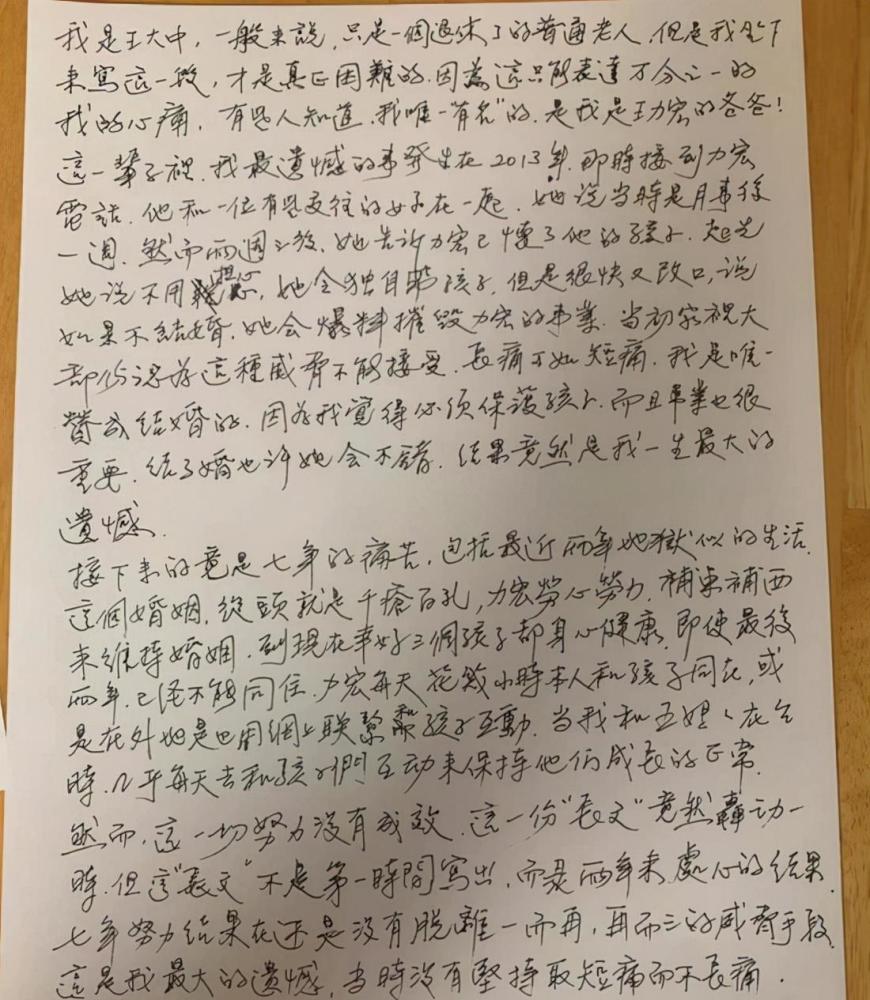 我是王大中，一般來說，只是一個退休了的普通老人，但是我坐下
來寫這一段，才是真正困難的，因為這只能表達万分之一的
我的心痛，有些人知道，我唯一“有名”的，是我是王力宏的爸爸！
這一輩子裡，我最遺憾的事發生在2013年，即時接到力宏
電話，他和一位有些交往的女子在一起，她說當時是月事後
一週，然而兩週之後，她告訴力宏已懷了他的孩子，起先
她說不用担心，她会独自帶孩子，但是很快又改口，說
如果不結婚，她会爆料摧毀力宏的事業，當初家裡大
部份認為這種威脅不能接受，長痛不如短痛，我是唯一
贊成結婚的，因為我覺得必須保護孩子，而且事業也很
重要，結了婚也许她会不錯，結果竟然是我一生最大的
遺憾，
接下來的竟是七年的痛苦，包括最近兩年地獄似的生活，
這個婚姻，從頭就是千瘡百孔，力宏勞心勞力，補東補西
來維持婚姻，到現在幸好三個孩子都身心健康，即使最後
兩年，已经不能同住，力宏每天花幾小時本人和孩子同在，或
是在外地是也用網上联繫和孩子互動，當我和王媽媽在台
時，几乎每天去和孩子們互动來保持他们成長的正常，
然而，這一切努力沒有成效，這一份“長文”竟然轟动一
時，但這“長文”不是第一時間寫出，而是兩年來處心的結果，
七年努力結果在还是沒有脫離一而再，再而三的威脅手段，
這是我最大的遺憾，當時沒有堅持取短痛而不長痛．